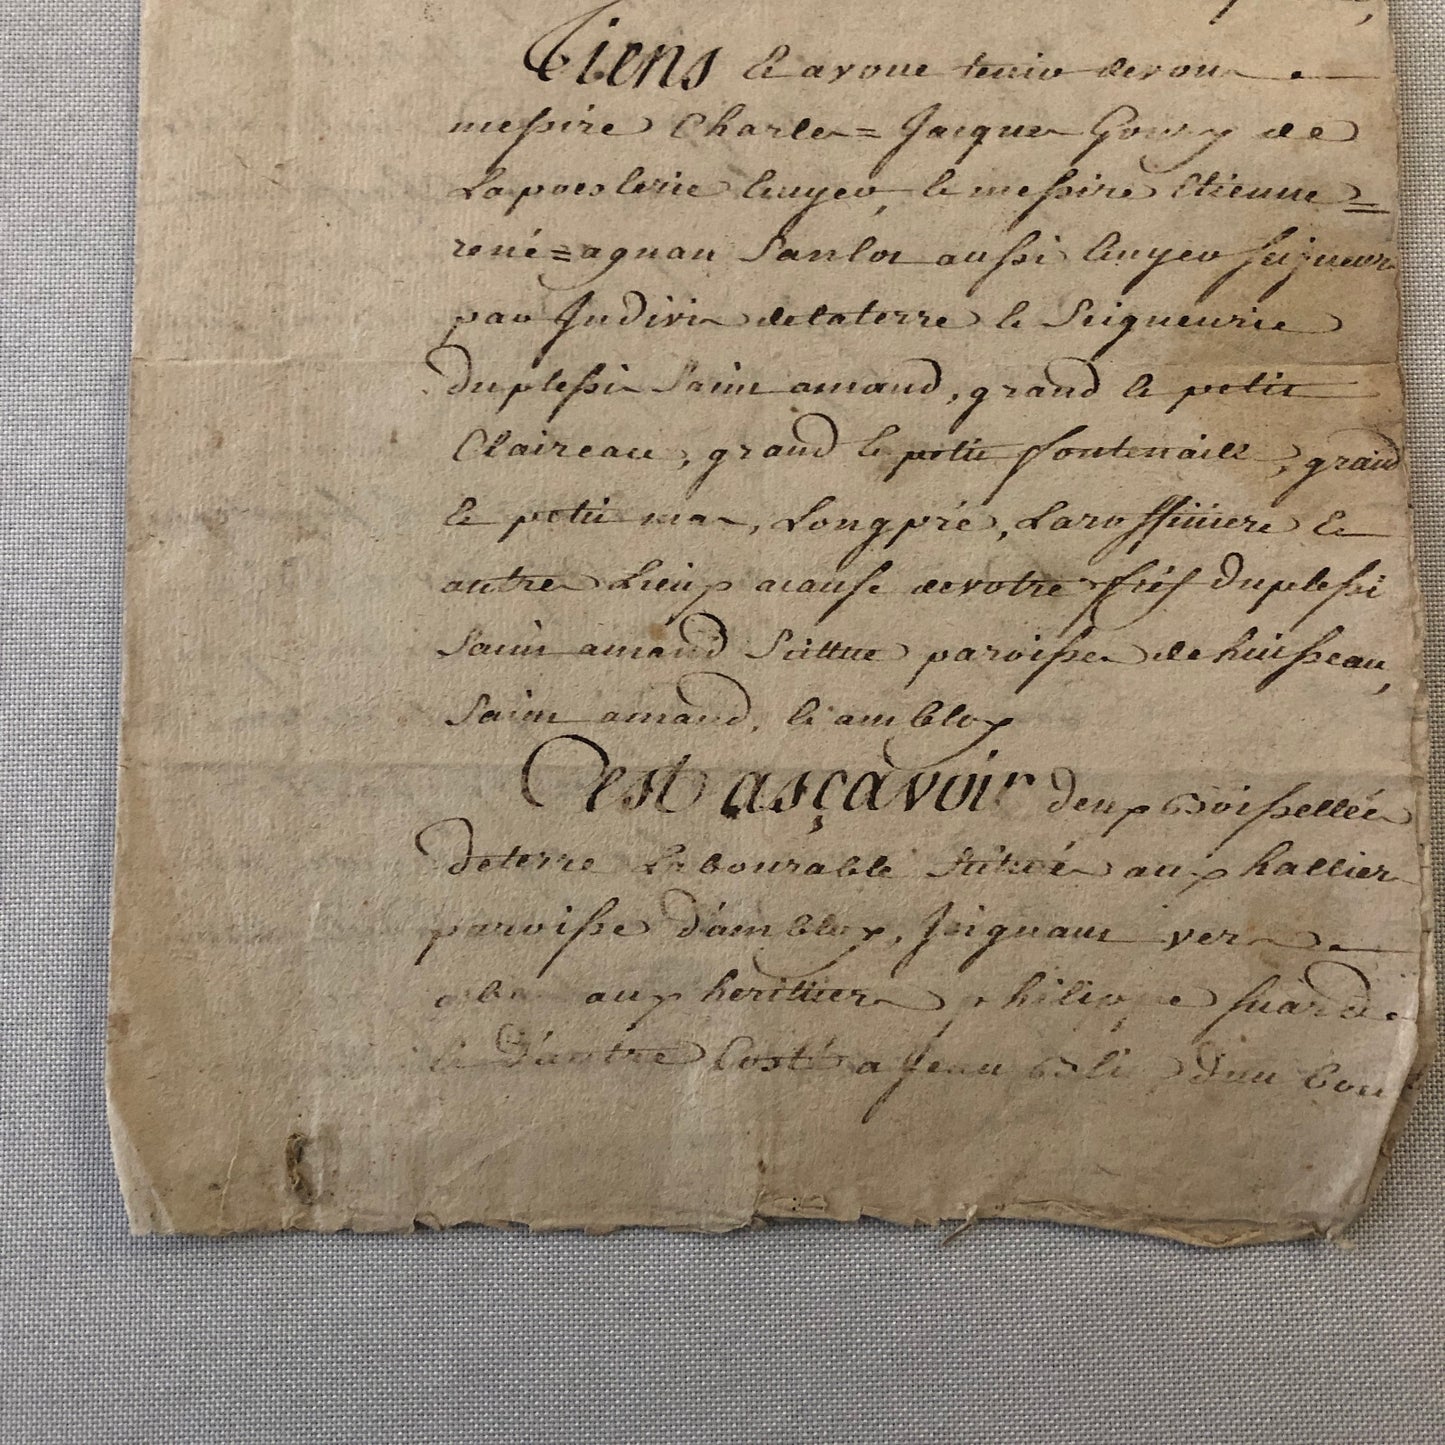 Tiens & avoue tenir de vous
messire Charles = Jacques Goury de
Lapoesterie Ecuyer, & messire Etienne =
rené = agnan Sanlot aussi Ecuyer seigneurs
par Indivis delaterre & Seigneurie
duplessis Saint amand, grand & petit
Claireau, grand & petit fontenaille, grand
& petit mas, Longpré, La &
autres Lieux acause devotre fief Duplessi
Saint amand Scittué paroisses de huisseau,
Saint amand, & ambloy
C'est asçàvoir deux Boissellées
deterre Labourable scituées aux halliers
paroisse d'ambloy, Joignant vers
aux herittiers philippe huard
& D'autre Costé a Jean d'un bout